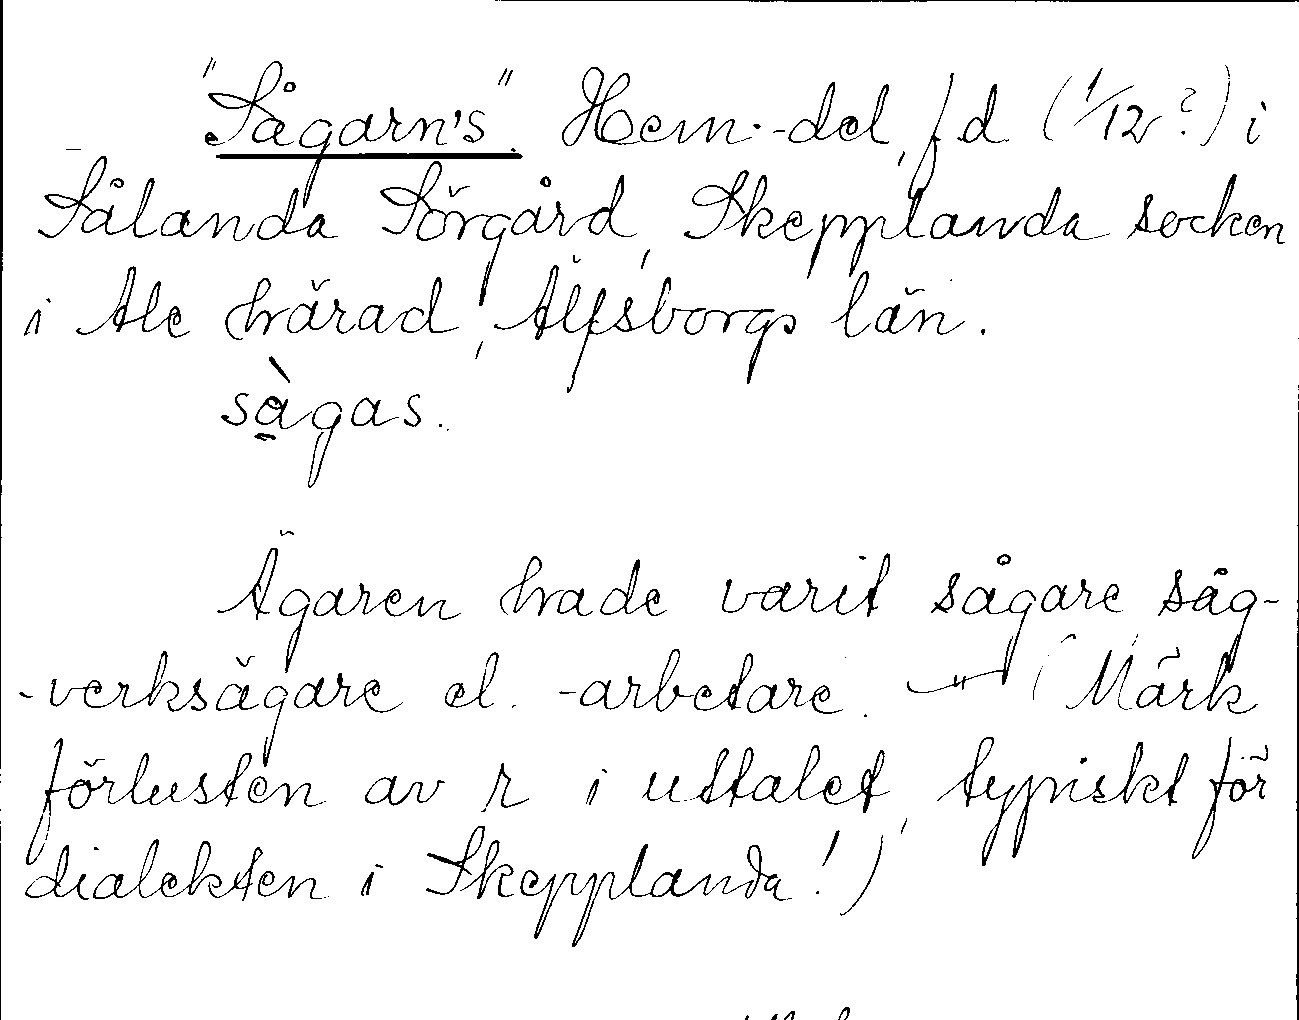 "Sågarn's". Hem.-del, f d (1/12?) i
Sålanda Sörgård, Skepplanda socken
i Ale härad, Älfsborgs län.
sàgas.
Ägaren hade varit sågare såg-
-verksägare el. -arbetare. — (Märk
förlusten av r i uttalet, typiskt för
dialekten i Skepplanda!)